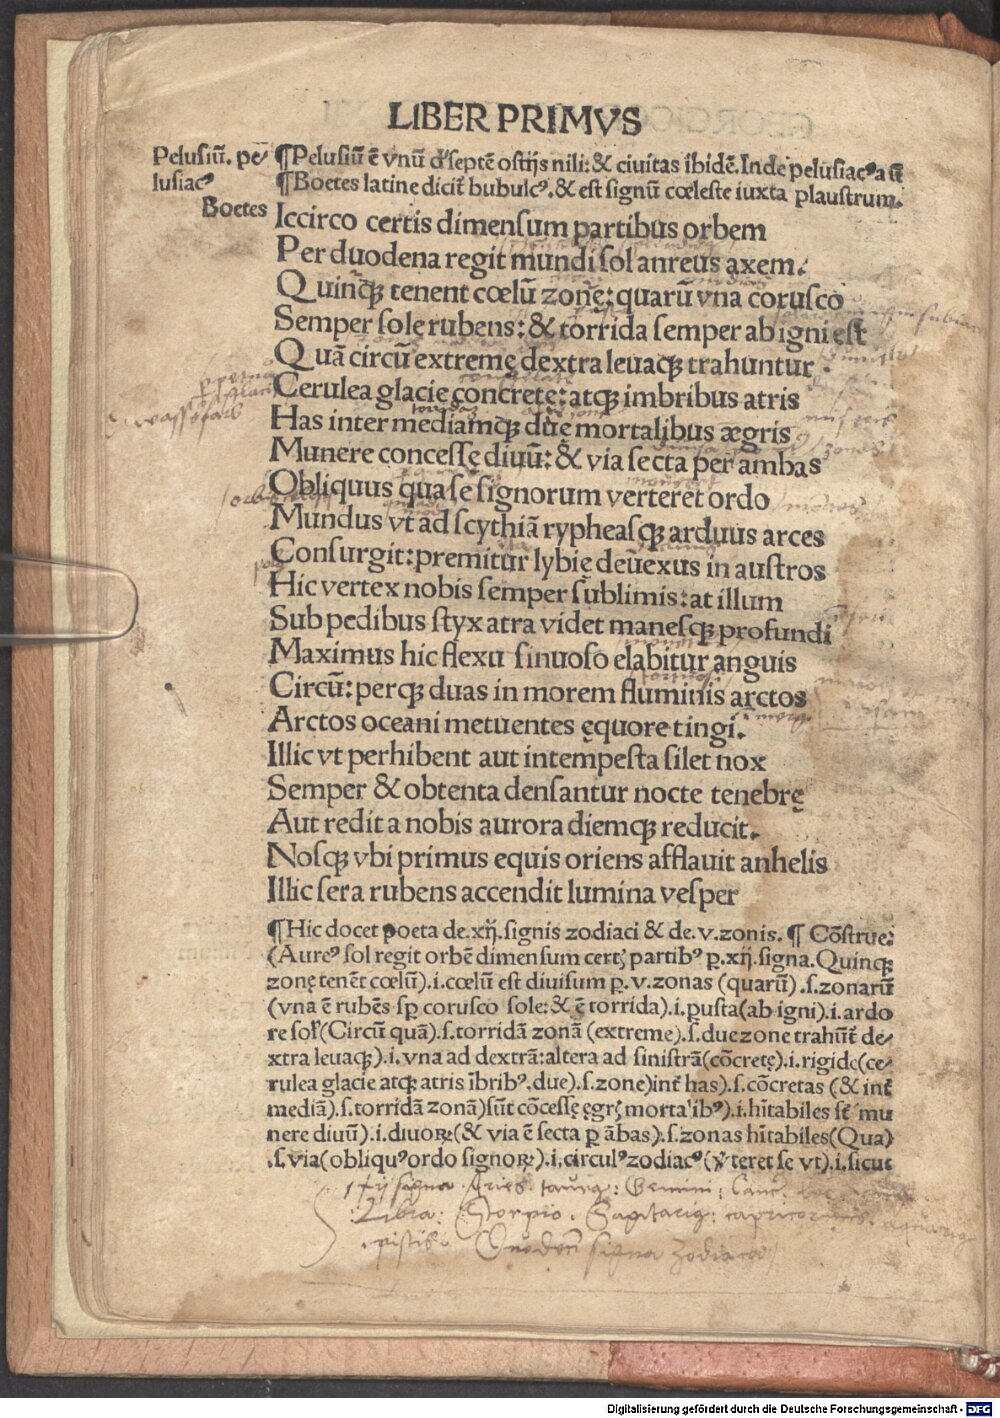 LIBER PRIMVS
Pelusiū. pe⸗ ¶Pelusiū ē vnū d' septē ostijs nili: & ciuitas ibidē. Inde pelusiacꝰ a ū
lusiacꝰ ¶Boetes latine dicit̄ bubulcꝰ. & est signū cœleste iuxta plaustrum.
Boetes
Iccirco certis dimensum partibus orbem
Per duodena regit mundi sol anreus axem.
Quinq̨ tenent cœlū zonę: quarū vna corusco
Semper sole rubens: & torrida semper ab igni est
Quā circū extremę dextra leuaq̨ trahuntur
Cerulea glacie concretę: atq̨ imbribus atris
Has inter mediamq̨ duę mortalibus ægris
Munere concessę diuū: & via secta per ambas
Obliquus qua se signorum verteret ordo
Mundus vt ad scythiā rypheasq̨ arduus arces
Consurgit: premitur lybię deuexus in austros
Hic vertex nobis semper sublimis: at illum
Sub pedibus styx atra videt manesq̨ profundi
Maximus hic flexu sinuoso elabitur anguis
Circū: perq̨ duas in morem fluminis arctos
Arctos oceani metuentes ęquore tingi.
Illic vt perhibent aut intempesta silet nox
Semper & obtenta densantur nocte tenebrę
Aut redit a nobis aurora diemq̨ reducit.
Nosq̨ vbi primus equis oriens afflauit anhelis
Illic sera rubens accendit lumina vesper
¶Hic docet poeta de .xij. signis zodiaci & de .v. zonis. ¶ Cōstrue:
(Aureꝰ sol regit orbē dimensum certꝭ partibꝰ p̱ .xij. signa. Quinq̨
zonę tenēt cœlū) .i. cœlū est diuisum p̱ .v. zonas (quarū) .s. zonarū
(vna ē rubēs sp̄ corusco sole: & ē torrida) .i. p̱usta (ab igni) .i. ardo
re solꝭ (Circū quā) .s. torridā zonā (extreme) .s. due zone trahūt̄ de⸗
xtra leuaq̨) .i. vna ad dextrā: altera ad sinistrā (cōcretę) .i. rigide (ce⸗
rulea glacie atq̨ atris ībribꝰ. due) .s. zone) int̄ has) .s. cōcretas (& int̄
mediā) .s. torridā zonā) sūt cōcessę ęgrꝭ mortalibꝰ) .i. hītabiles st̄ mu
nere diuū) .i. diuoꝝ (& via ē secta p̱ ābas) .s. zonas hītabiles (Qua)
.s. via (obliquꝰ ordo signoꝝ) .i. circulꝰ zodiacꝰ (v̓teret se vt) .i. sicut
signa Aries. taurꝰ: Gemini: Canc̄.
Libra: Scorpio. Sagitariꝰ: capricornus. aquariꝰ
pistis. signa Zodiaca
Digitalisierung gefördert durch die Deutsche Forschungsgemeinschaft - DFG